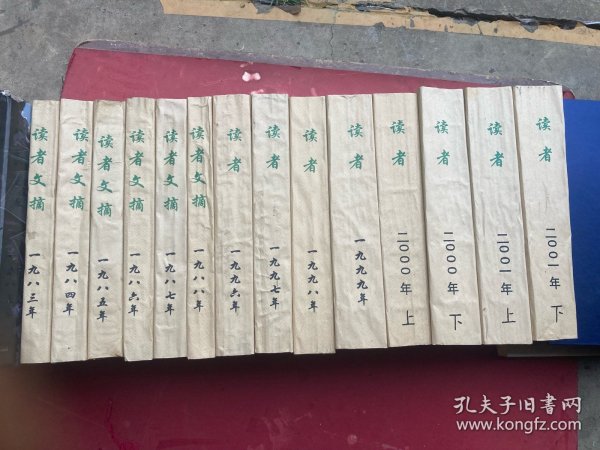 读者文摘
一九八三年
读者文摘
一九八四年
读者文摘
一九八五年
读者文摘
一九八六年
读者文摘
一九八七年
读者文摘
一九八八年
读者
一九九六年
读者
一九九七年
读者
一九九八年
读者
一九九九年
读者
二〇〇〇年
上
读者
二〇〇〇年
下
读者
二〇〇一年
上
读者
二〇〇一年
下
孔夫子旧书网
www.kongfz.com